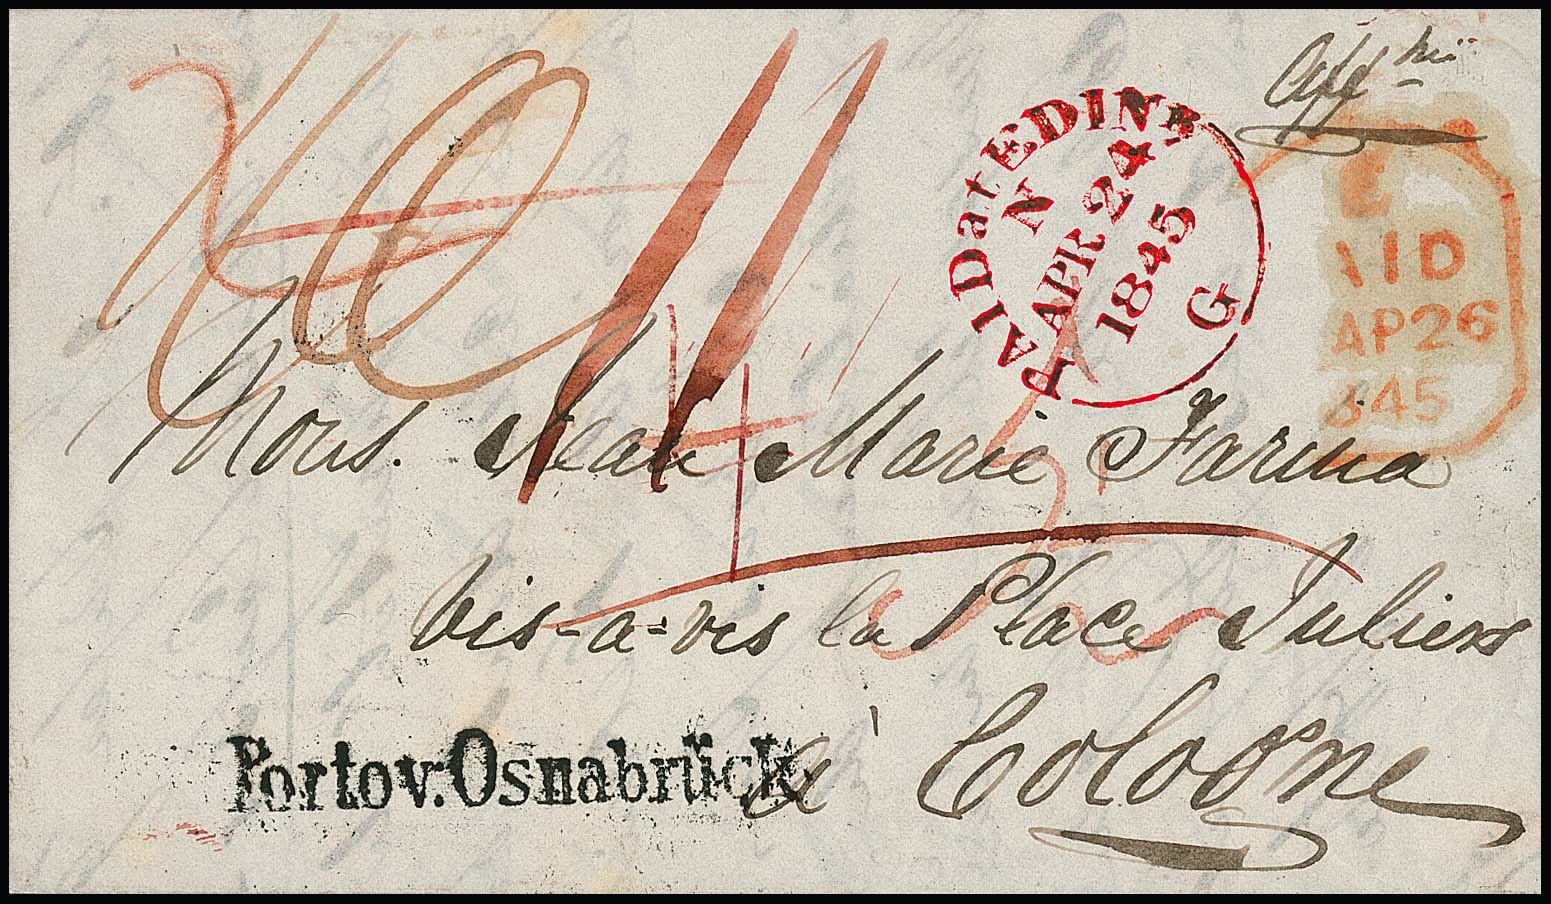 PAID at EDINB
N
APR 24
1845
G
AID
AP 26
845
Mons. Jean Marie Farina
vis-a-vis la Place Juliers
à Cologne
Porto v. Osnabrück